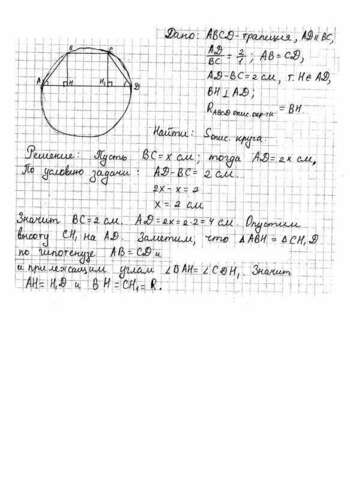 Дано: ABCD-трапеция, AD∥BC,
AD/BC = 2/1; AB=CD,
AD-BC=2см, т. H∈AD,
BH⊥AD;
R ABCD опис. окр-ти = BH
Найти: Sопис. круга.
B C
A H H₁ D
Решение: Пусть BC=x см; тогда AD=2x см,
По условию задачи: AD-BC=2см
2x-x=2
x=2 см
Значит BC=2см. AD=2x=2·2=4см. Опустим
высоту CH₁ на AD. Заметим, что △ABH=△CH₁D
по гипотенузе AB=CD и
и прилежащим углам ∠BAH=∠CDH₁. Значит
AH=H₁D и BH=CH₁=R.